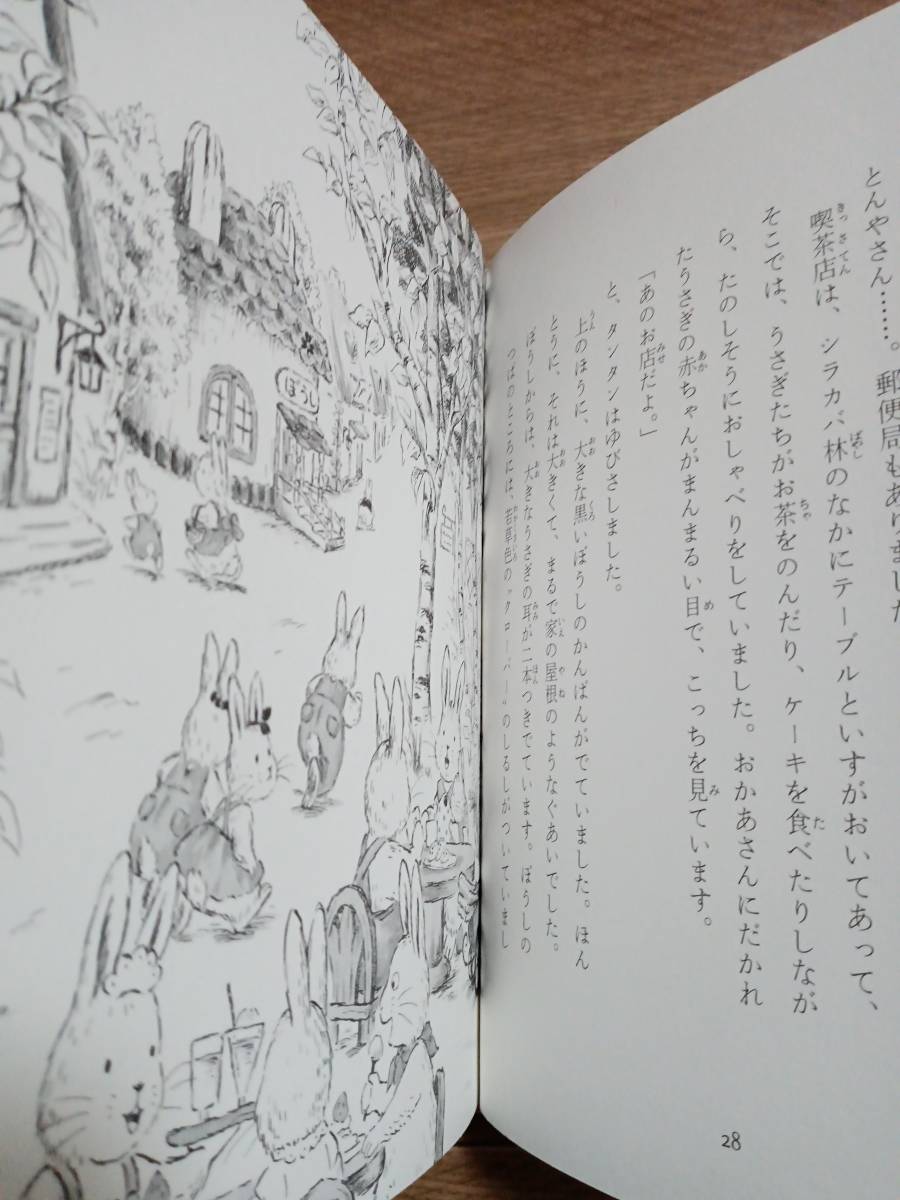 とんやさん……。郵便局もありました
喫茶店は、シラカバ林のなかにテーブルといすがおいてあって、
そこでは、うさぎたちがお茶をのんだり、ケーキを食べたりしなが
ら、たのしそうにおしゃべりをしていました。おかあさんにだかれ
たうさぎの赤ちゃんがまんまるい目で、こっちを見ています。
「あのお店だよ。」
と、タンタンはゆびさしました。
上のほうに、大きな黒いぼうしのかんばんがでていました。ほん
とうに、それは大きくて、まるで家の屋根のようなぐあいでした。
ぼうしからは、大きなうさぎの耳が二本つきでています。ぼうしの
つばのところには、若草色の〝クローバー〟のしるしがついていまし
28
ぼうし